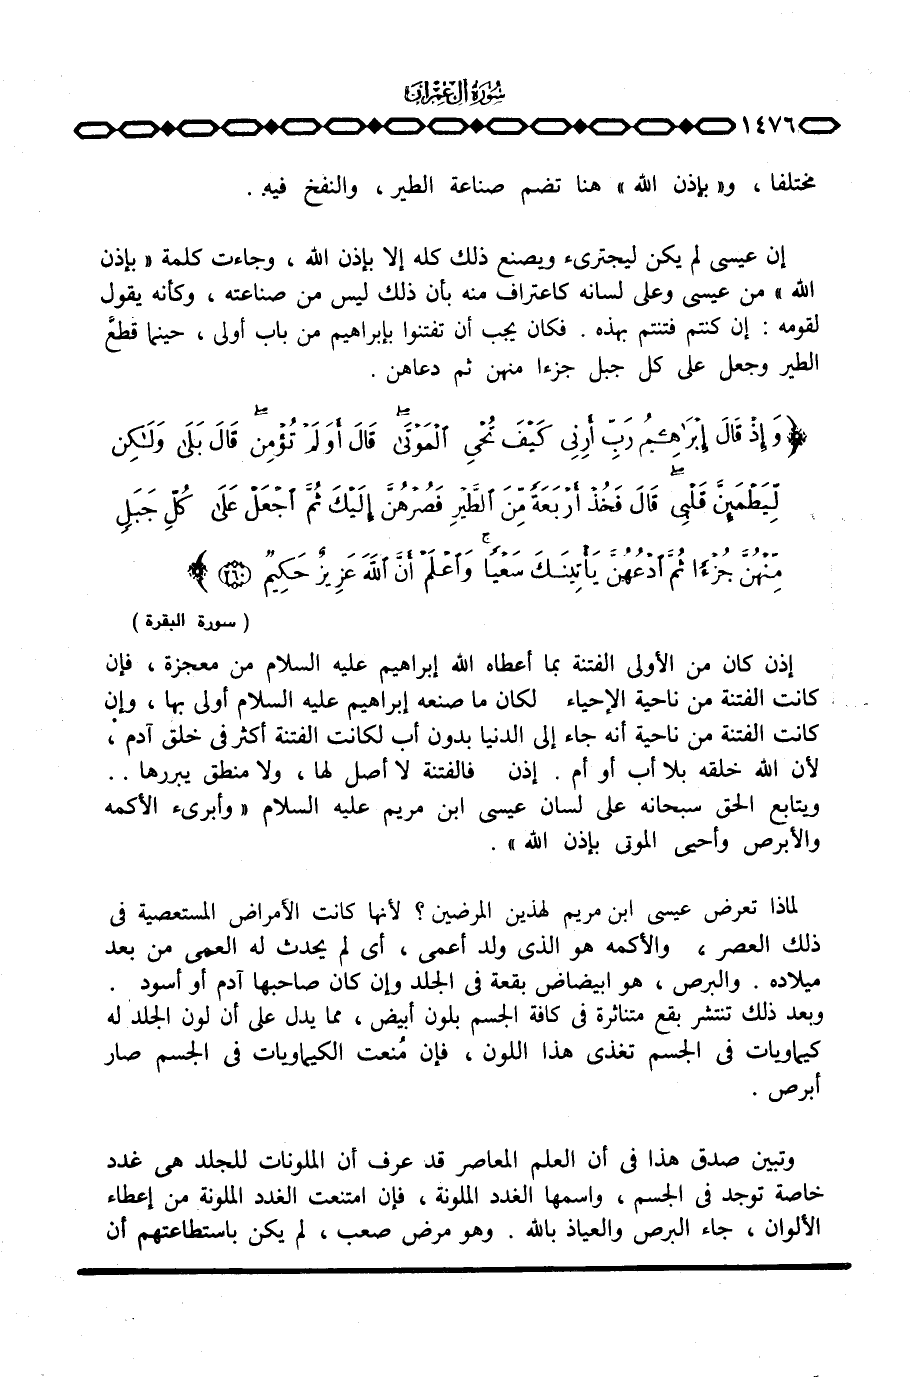 سورة آل عمران
١٤٧٦
مختلفا ، و« بإذن الله » هنا تضم صناعة الطير ، والنفخ فيه .
إن عيسى لم يكن ليجترىء ويصنع ذلك كله إلا بإذن الله ، وجاءت كلمة « بإذن
الله » من عيسى وعلى لسانه كاعتراف منه بأن ذلك ليس من صناعته ، وكأنه يقول
لقومه : إن كنتم فتنتم بهذه . فكان يجب أن تفتنوا بإبراهيم من باب أولى ، حينما قطعَّ
الطير وجعل على كل جبل جزءا منهن ثم دعاهن .
﴿ وَإِذْ قَالَ إِبْرَاهِـۧمُ رَبِّ أَرِنِى كَيْفَ تُحْىِ ٱلْمَوْتَىٰ ۖ قَالَ أَوَلَمْ تُؤْمِن ۖ قَالَ بَلَىٰ وَلَـٰكِن
لِّيَطْمَئِنَّ قَلْبِى ۖ قَالَ فَخُذْ أَرْبَعَةً مِّنَ ٱلطَّيْرِ فَصُرْهُنَّ إِلَيْكَ ثُمَّ ٱجْعَلْ عَلَىٰ كُلِّ جَبَلٍ
مِّنْهُنَّ جُزْءًا ثُمَّ ٱدْعُهُنَّ يَأْتِينَكَ سَعْيًا ۚ وَٱعْلَمْ أَنَّ ٱللَّهَ عَزِيزٌ حَكِيمٌ ٢٦٠ ﴾
( سورة البقرة )
إذن كان من الأولى الفتنة بما أعطاه الله إبراهيم عليه السلام من معجزة ، فإن
كانت الفتنة من ناحية الإحياء لكان ما صنعه إبراهيم عليه السلام أولى بها ، وإن
كانت الفتنة من ناحية أنه جاء إلى الدنيا بدون أب لكانت الفتنة أكثر فى خلق آدم ،
لأن الله خلقه بلا أب أو أم . إذن فالفتنة لا أصل لها ، ولا منطق يبررها . .
ويتابع الحق سبحانه على لسان عيسى ابن مريم عليه السلام « وأبرىء الأكمه
والأبرص وأحيى الموتى بإذن الله » .
لماذا تعرض عيسى ابن مريم لهذين المرضين ؟ لأنها كانت الأمراض المستعصية فى
ذلك العصر ، والأكمه هو الذى ولد أعمى ، أى لم يحدث له العمى من بعد
ميلاده . والبرص ، هو ابيضاض بقعة فى الجلد وإن كان صاحبها آدم أو أسود .
وبعد ذلك تنتشر بقع متناثرة فى كافة الجسم بلون أبيض ، مما يدل على أن لون الجلد له
كيماويات فى الجسم تغذى هذا اللون ، فإن مُنعت الكيماويات فى الجسم صار
أبرص .
وتبين صدق هذا فى أن العلم المعاصر قد عرف أن الملونات للجلد هى غدد
خاصة توجد فى الجسم ، واسمها الغدد الملونة ، فإن امتنعت الغدد الملونة من إعطاء
الألوان ، جاء البرص والعياذ بالله . وهو مرض صعب ، لم يكن باستطاعتهم أن